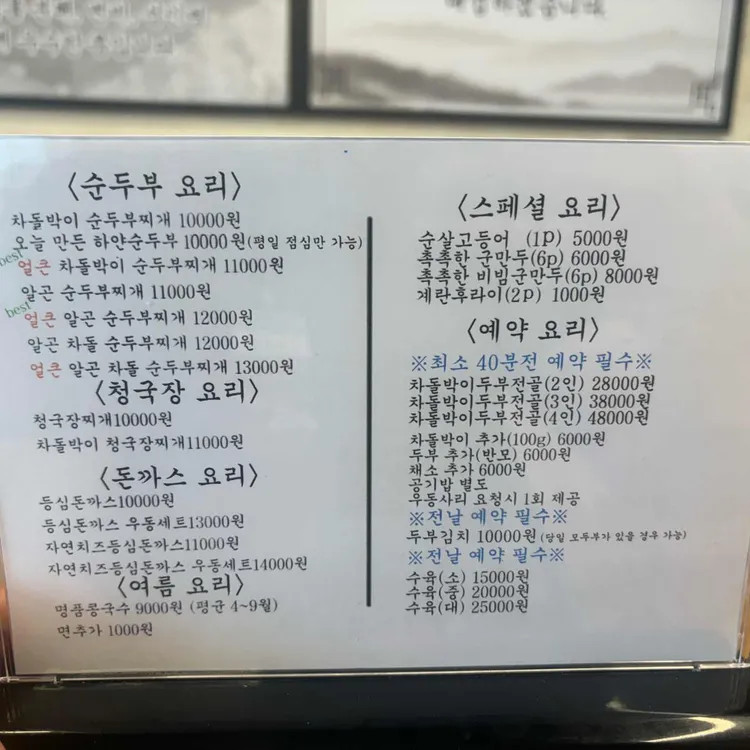 <순두부 요리>
차돌박이 순두부찌개 10000원
오늘 만든 하얀순두부 10000원(평일 점심만 가능)
best
얼큰 차돌박이 순두부찌개 11000원
알곤 순두부찌개 11000원
best
얼큰 알곤 순두부찌개 12000원
알곤 차돌 순두부찌개 12000원
얼큰 알곤 차돌 순두부찌개 13000원
<청국장 요리>
청국장찌개10000원
차돌박이 청국장찌개11000원
<돈까스 요리>
등심돈까스10000원
등심돈까스 우동세트13000원
자연치즈등심돈까스11000원
자연치즈등심돈까스 우동세트14000원
<여름 요리>
명품콩국수 9000원 (평균 4~9월)
면추가 1000원
<스페셜 요리>
순살고등어 (1p) 5000원
촉촉한 군만두(6p) 6000원
촉촉한 비빔군만두(6p) 8000원
계란후라이(2p) 1000원
<예약 요리>
※최소 40분전 예약 필수※
차돌박이두부전골(2인) 28000원
차돌박이두부전골(3인) 38000원
차돌박이두부전골(4인) 48000원
차돌박이 추가(100g) 6000원
두부 추가(반모) 6000원
채소 추가 6000원
공기밥 별도
우동사리 요청시 1회 제공
※전날 예약 필수※
두부김치 10000원 (당일 모두부가 있을 경우 가능)
※전날 예약 필수※
수육(소) 15000원
수육(중) 20000원
수육(대) 25000원